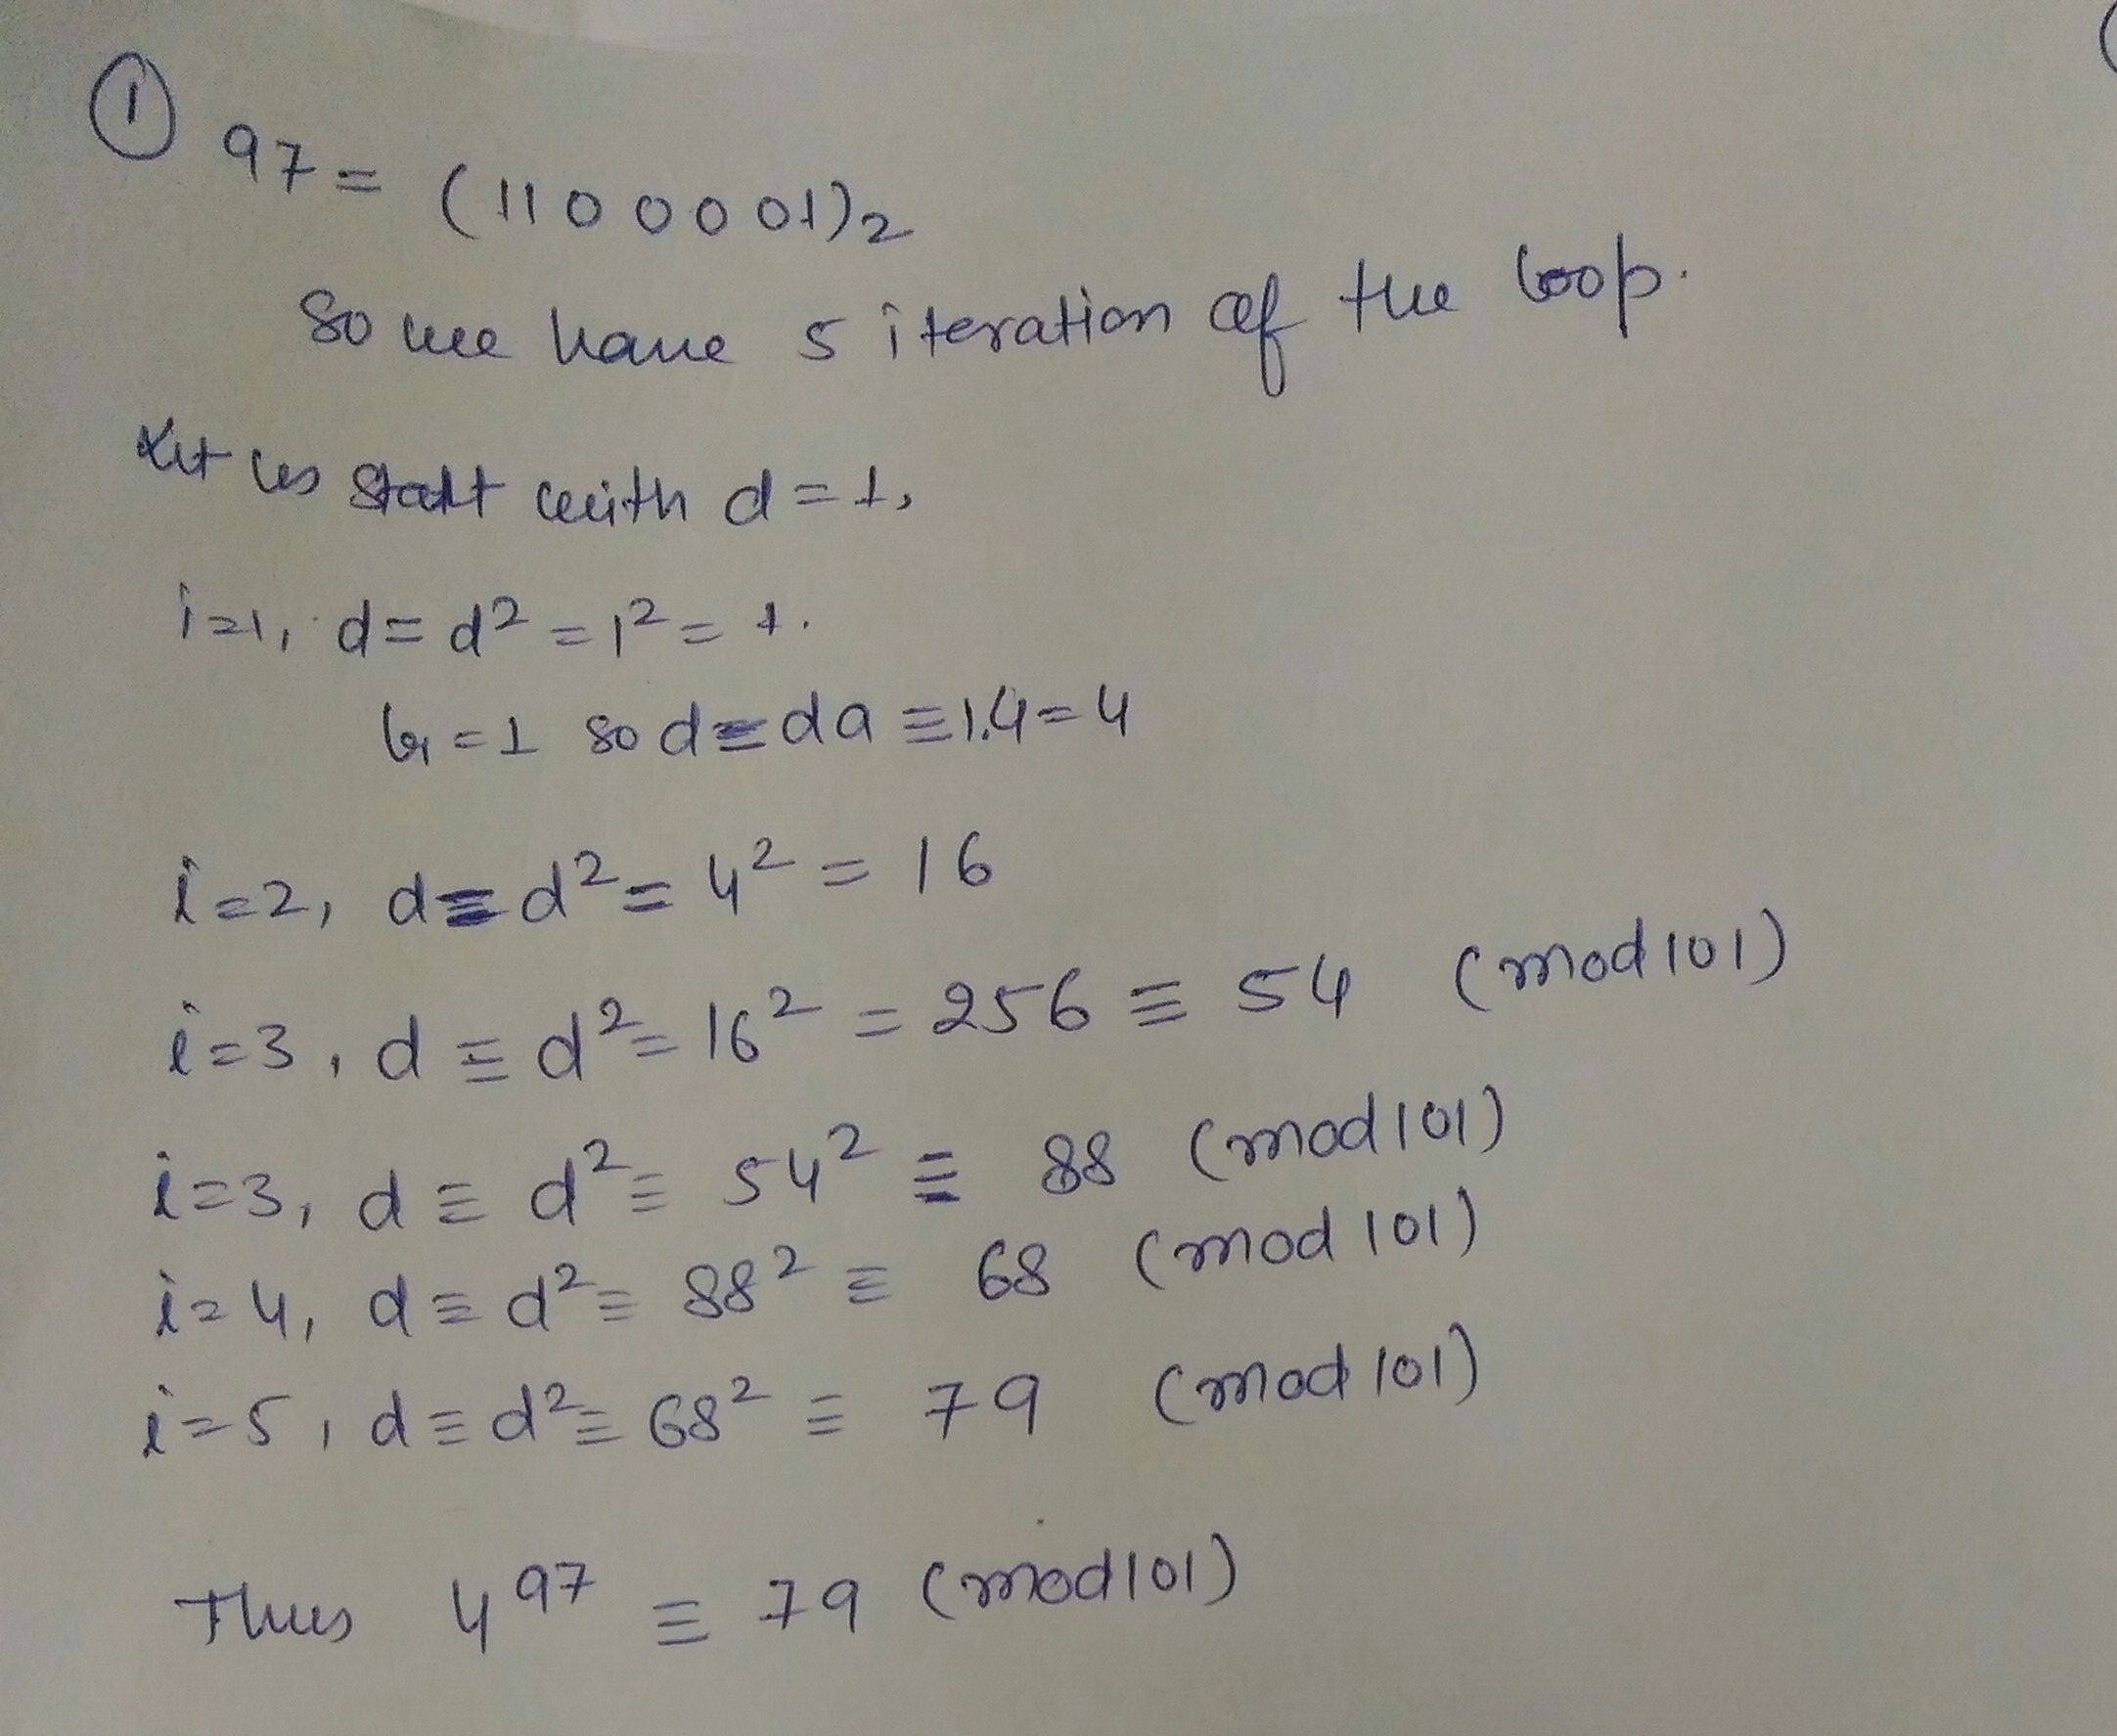 ① 97 = (1100001)₂
So we have 5 iteration of the loop.
Let us start with d = 1,
i=1, d = d² = 1² = 1.
b₁ = 1 so d ≡ da ≡ 1.4 = 4
i=2, d ≡ d² = 4² = 16
i=3, d ≡ d² = 16² = 256 ≡ 54 (mod 101)
i=3, d ≡ d² ≡ 54² ≡ 88 (mod 101)
i=4, d ≡ d² ≡ 88² ≡ 68 (mod 101)
i=5, d ≡ d² ≡ 68² ≡ 79 (mod 101)
Thus 4⁹⁷ ≡ 79 (mod 101)